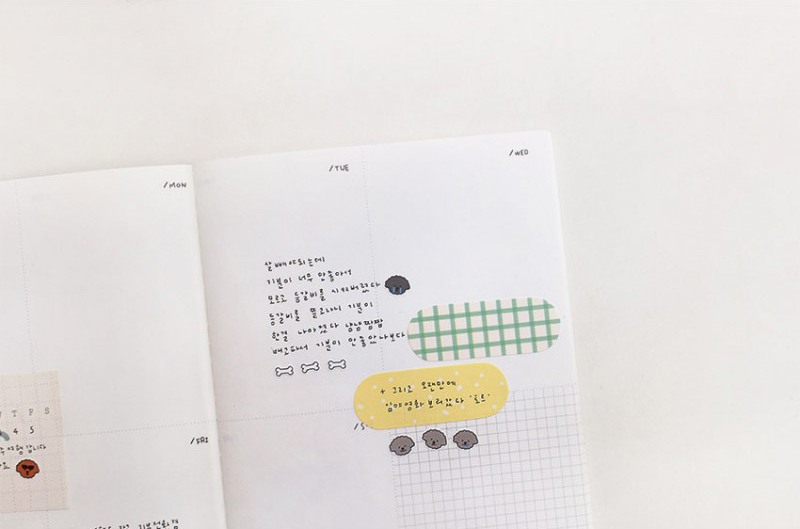 /MON
/TUE
/WED
살빼야되는데
기분이 너무 안좋아서
모르고 등갈비를 시켜버렸다
등갈비를 뜯고나니 기분이
한결 나아졌다 냠냠짭짭
배고파서 기분이 안좋았나보다
+ 그리고 오랜만에
심야영화 보러갔다
T F S
4 5
/FRI